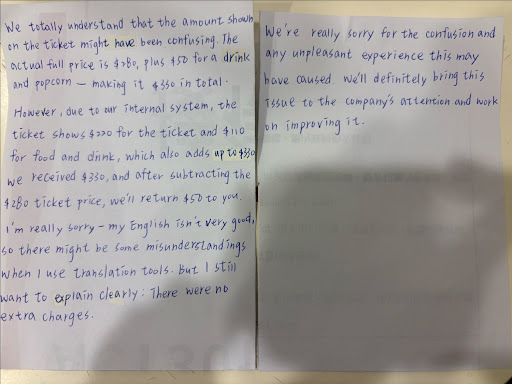 We totally understand that the amount shown
on the ticket might have been confusing. The
actual full price is $280, plus $50 for a drink
and popcorn — making it $330 in total.
However, due to our internal system, the
ticket shows $220 for the ticket and $110
for food and drink, which also adds up to $330
we received $330, and after subtracting the
$280 ticket price, we'll return $50 to you.
I'm really sorry – my English isn't very good,
so there might be some misunderstandings
when I use translation tools. But I still
want to explain clearly: There were no
extra charges.
We're really sorry for the confusion and
any unpleasant experience this may
have caused. We'll definitely bring this
issue to the company's attention and work
on improving it.